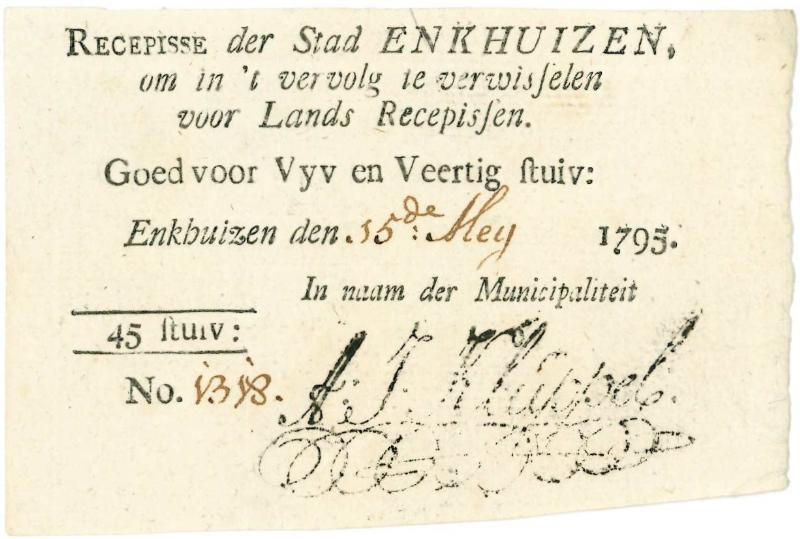 RECEPISSE der Stad ENKHUIZEN,
om in 't vervolg te verwisſelen
voor Lands Recepisſen.
Goed voor Vyv en Veertig ſtuiv:
Enkhuizen den 15de: Mey 1795.
In naam der Municipaliteit
45 ſtuiv:
No. 1318.
A: J. Kluppel.